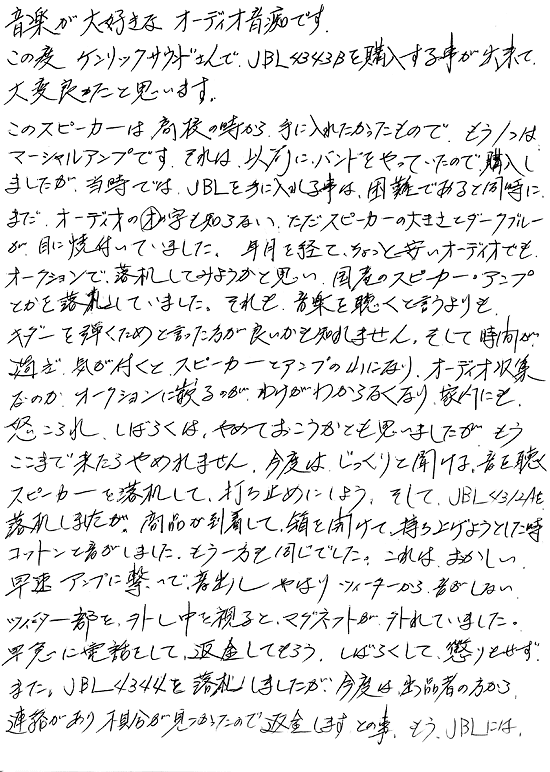 音楽が大好きな オーディオ音痴です.
この度 ケンリックサウンドさんで、JBL4343Bを購入する事が出来て.
大変良かったと思います。
このスピーカーは高校の時から 手に入れたかったもので、もう1つは.
マーシャルアンプです. それは、以前に、バンドをやっていたので購入し
ましたが、当時では、JBLを手に入れる事は、困難であると同時に.
まだ、オーディオのオの字も知らない、ただスピーカーの大きさとダークブルー
が、目に焼付いていました。 年月を経て、ちょっと安いオーディオでも.
オークションで、落札してみようかと思い、国産のスピーカー・アンプ
とかを落札していました。それも、音楽を聴くと言うよりも.
ギターを弾くためと言った方が良いかも知れません。そして時間が.
過ぎ、気が付くと、スピーカーとアンプの山になり、オーディオ収集
なのか オークションに散るのが わけがわからなくなり、家内にも.
怒こられ、しばらくは、やめておこうかとも思いましたが もう
ここまで来たらやめれません、今度は、じっくりと聞ける、音を聴く
スピーカーを落札して、打ち止めにしよう、そして、JBL4312Aを
落札しましたが。商品が到着して、箱を開けて、持ち上げようとした時
コットンと音がしました。もう一方も同じでした。これは、おかしい
早速 アンプに繋って、音出し やはり ツィーターから音がしない.
ツィーター部を、外し中を視ると、マグネットが、外れていました。
早急に電話をして、返金してもらう. しばらくして、懲りもせず
また。JBL4344を落札しましたが、今度は、出品者の方から、
連絡があり 不具合が見つかったので返金します との事. もう、JBLには、